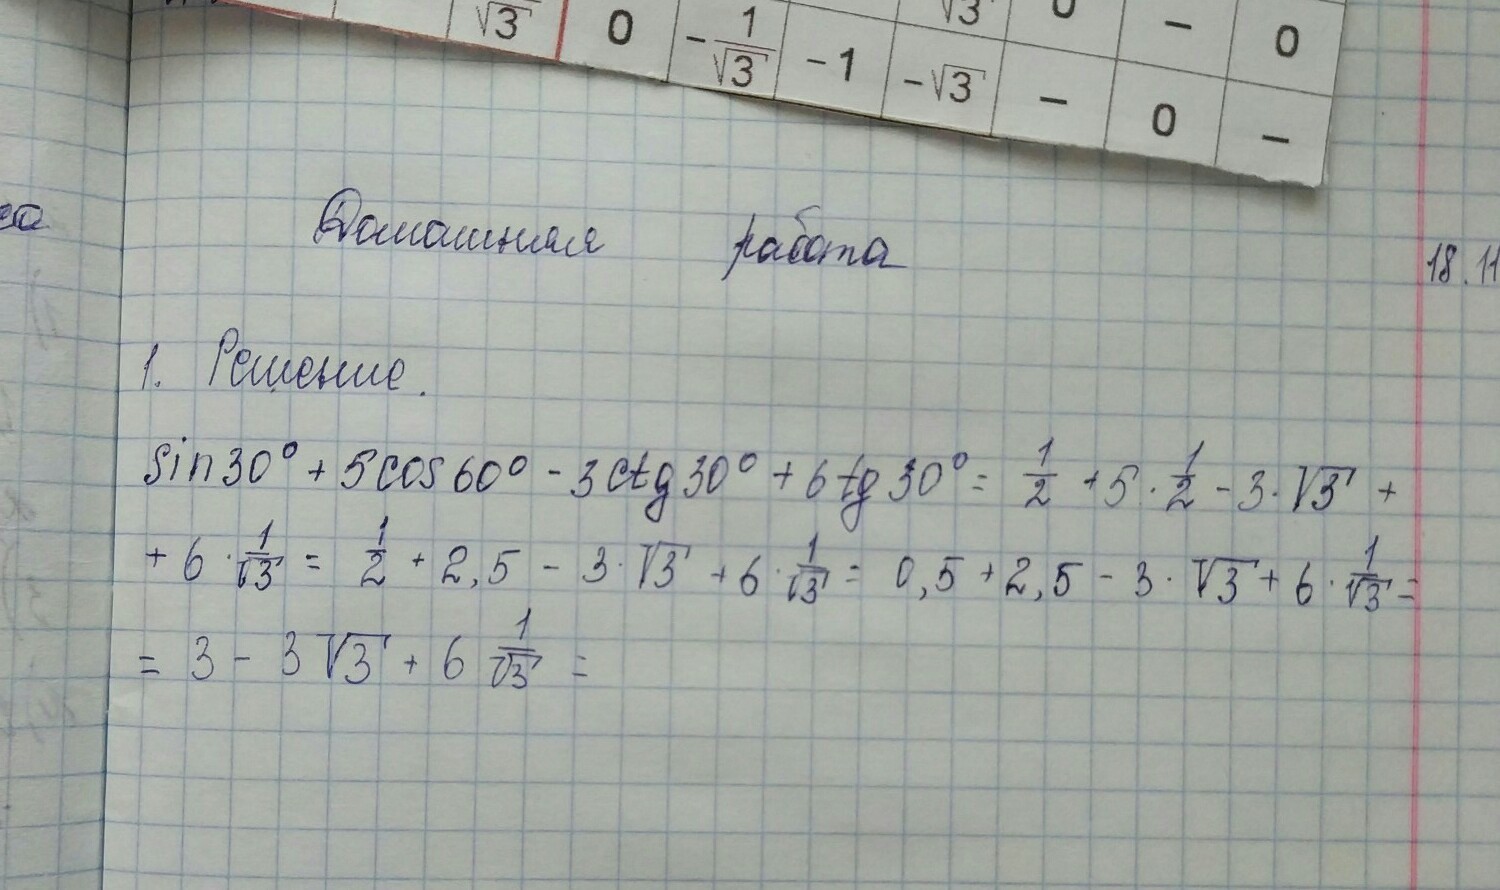 √3 0 -1/√3 √3 0 – 0
-1 -√3 – 0 –
са
Домашняя работа 18.11
1. Решение.
sin30° + 5cos60° - 3ctg30° + 6tg30° = 1/2 + 5 · 1/2 - 3 · √3 +
+ 6 · 1/√3 = 1/2 + 2,5 - 3 · √3 + 6 · 1/√3 = 0,5 + 2,5 - 3 · √3 + 6 · 1/√3 =
= 3 - 3√3 + 6 1/√3 =